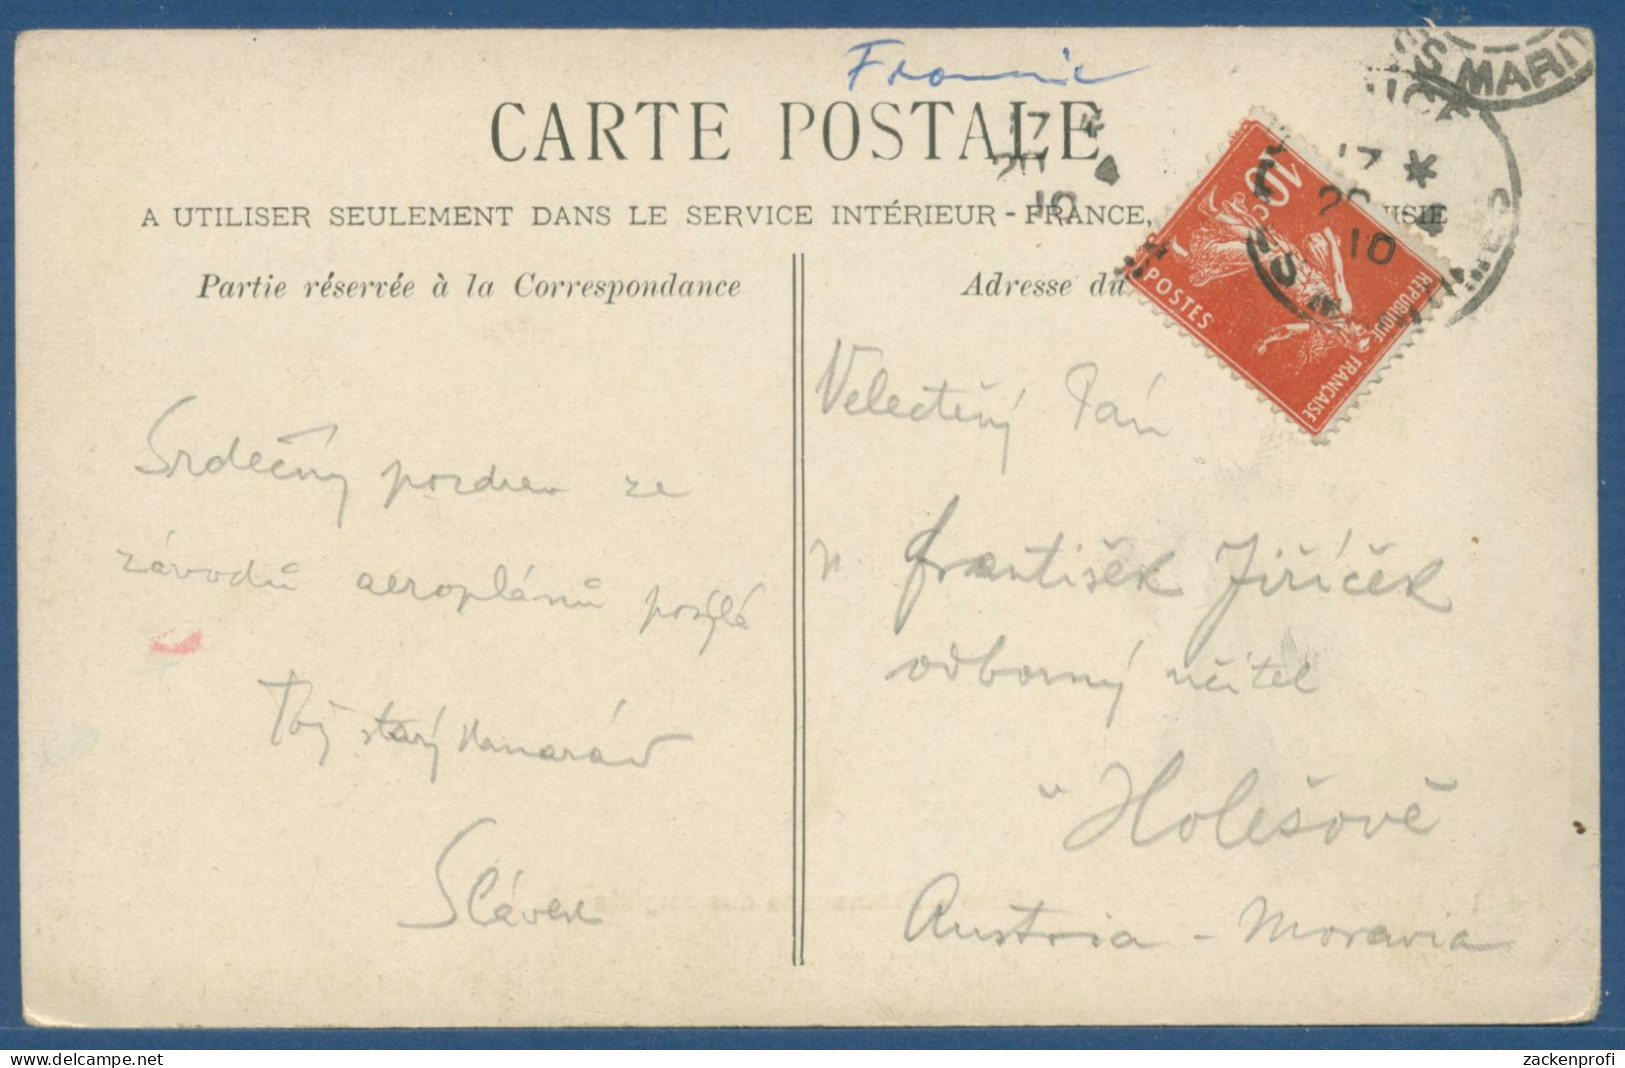 Francie
CARTE POSTALE
A UTILISER SEULEMENT DANS LE SERVICE INTÉRIEUR - FRANCE,
Partie réservée à la Correspondance
Adresse du
10c
POSTES
REPUBLIQUE FRANÇAISE
MARIT
NICE
17
20 4
10
17
20 4
10
Srdečný pozdrav ze
závodů aeroplánů posýlá
Tvůj starý kamarád
Slávek
Velectěný Pán
p. František Jiříček
odborný učitel
v Holešově
Austria - Moravia
zackenprofi